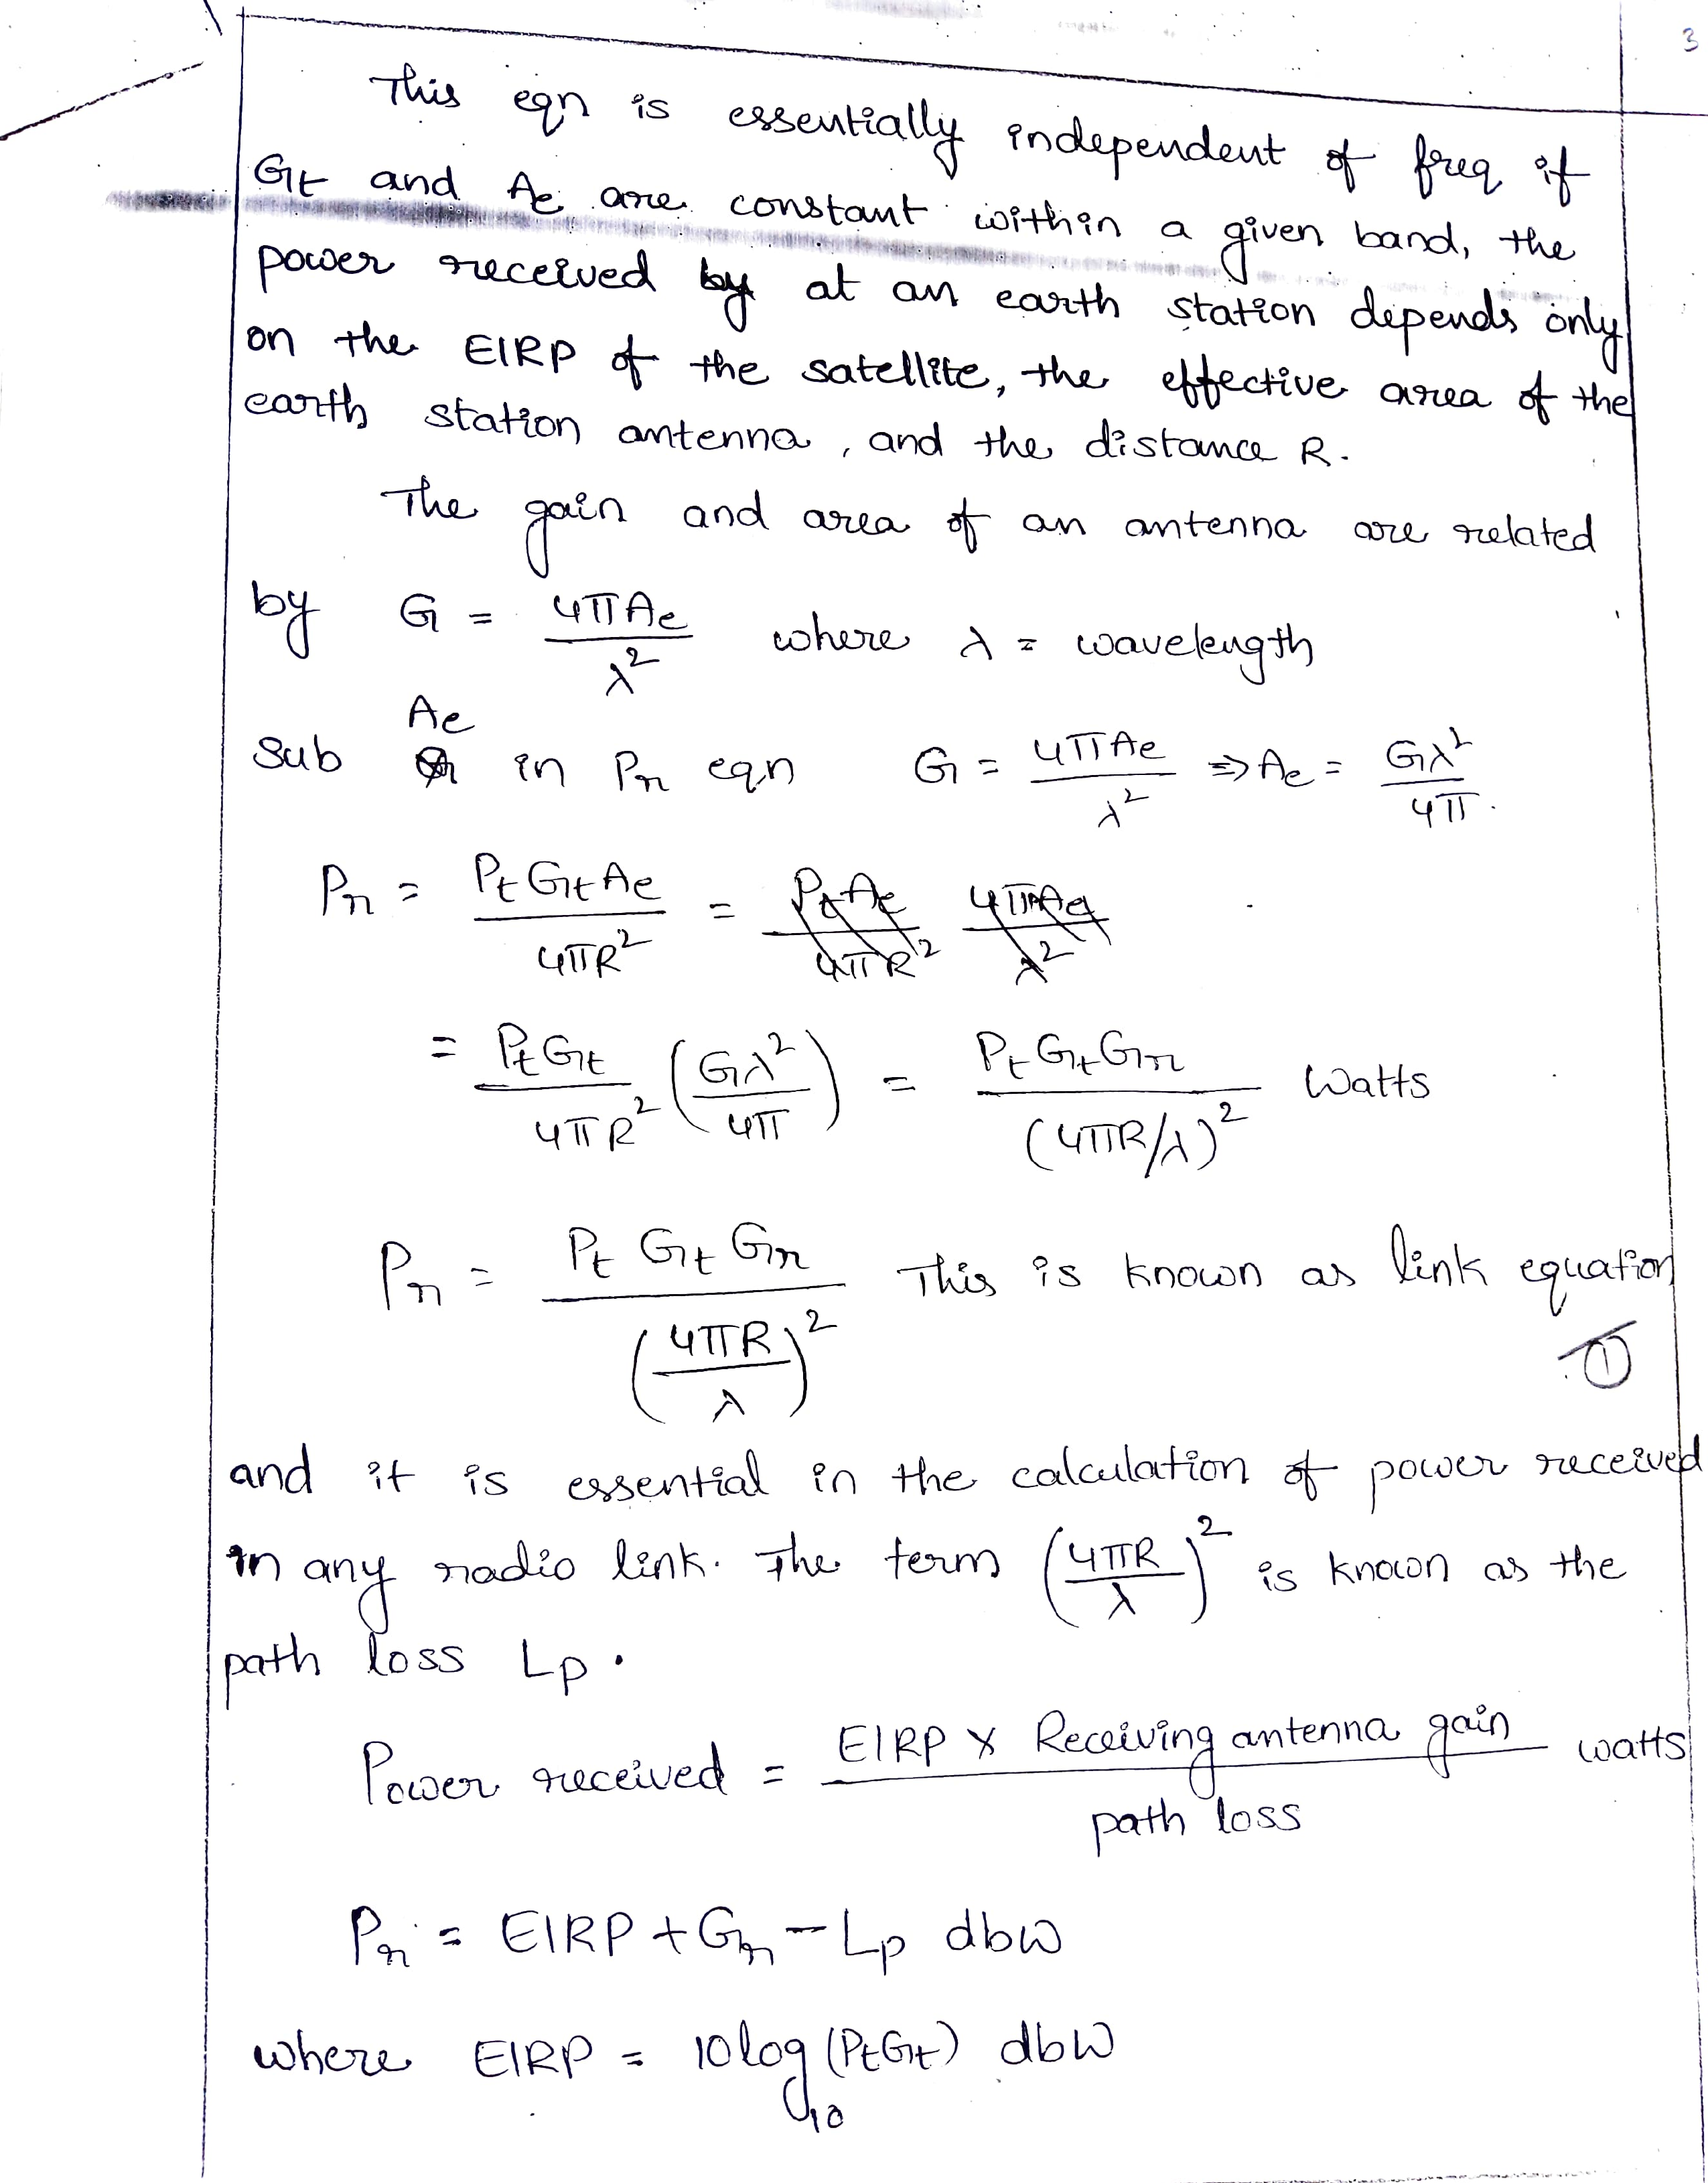 3
This eqn is essentially independent of freq if
Gt and Ae are constant within a given band, the
power received by at an earth station depends only
on the EIRP of the satellite, the effective area of the
earth station antenna, and the distance R.
The gain and area of an antenna are related
by G = 4πAe / λ² where λ = wavelength
Ae
Sub in Pr eqn G = 4πAe / λ² ⇒ Ae = Gλ² / 4π.
Pr = PtGtAe / 4πR² = PtAe / 4πR² 4πAe / λ²
= PtGt / 4πR² (Gλ² / 4π) = PtGtGr / (4πR/λ)² Watts
Pr = Pt Gt Gr / (4πR / λ)² This is known as link equation
①
and it is essential in the calculation of power received
in any radio link. The term (4πR / λ)² is known as the
path loss Lp.
Power received = EIRP x Receiving antenna gain / path loss watts
Pr = EIRP + Gr - Lp dbw
where EIRP = 10log₁₀(PtGt) dbW